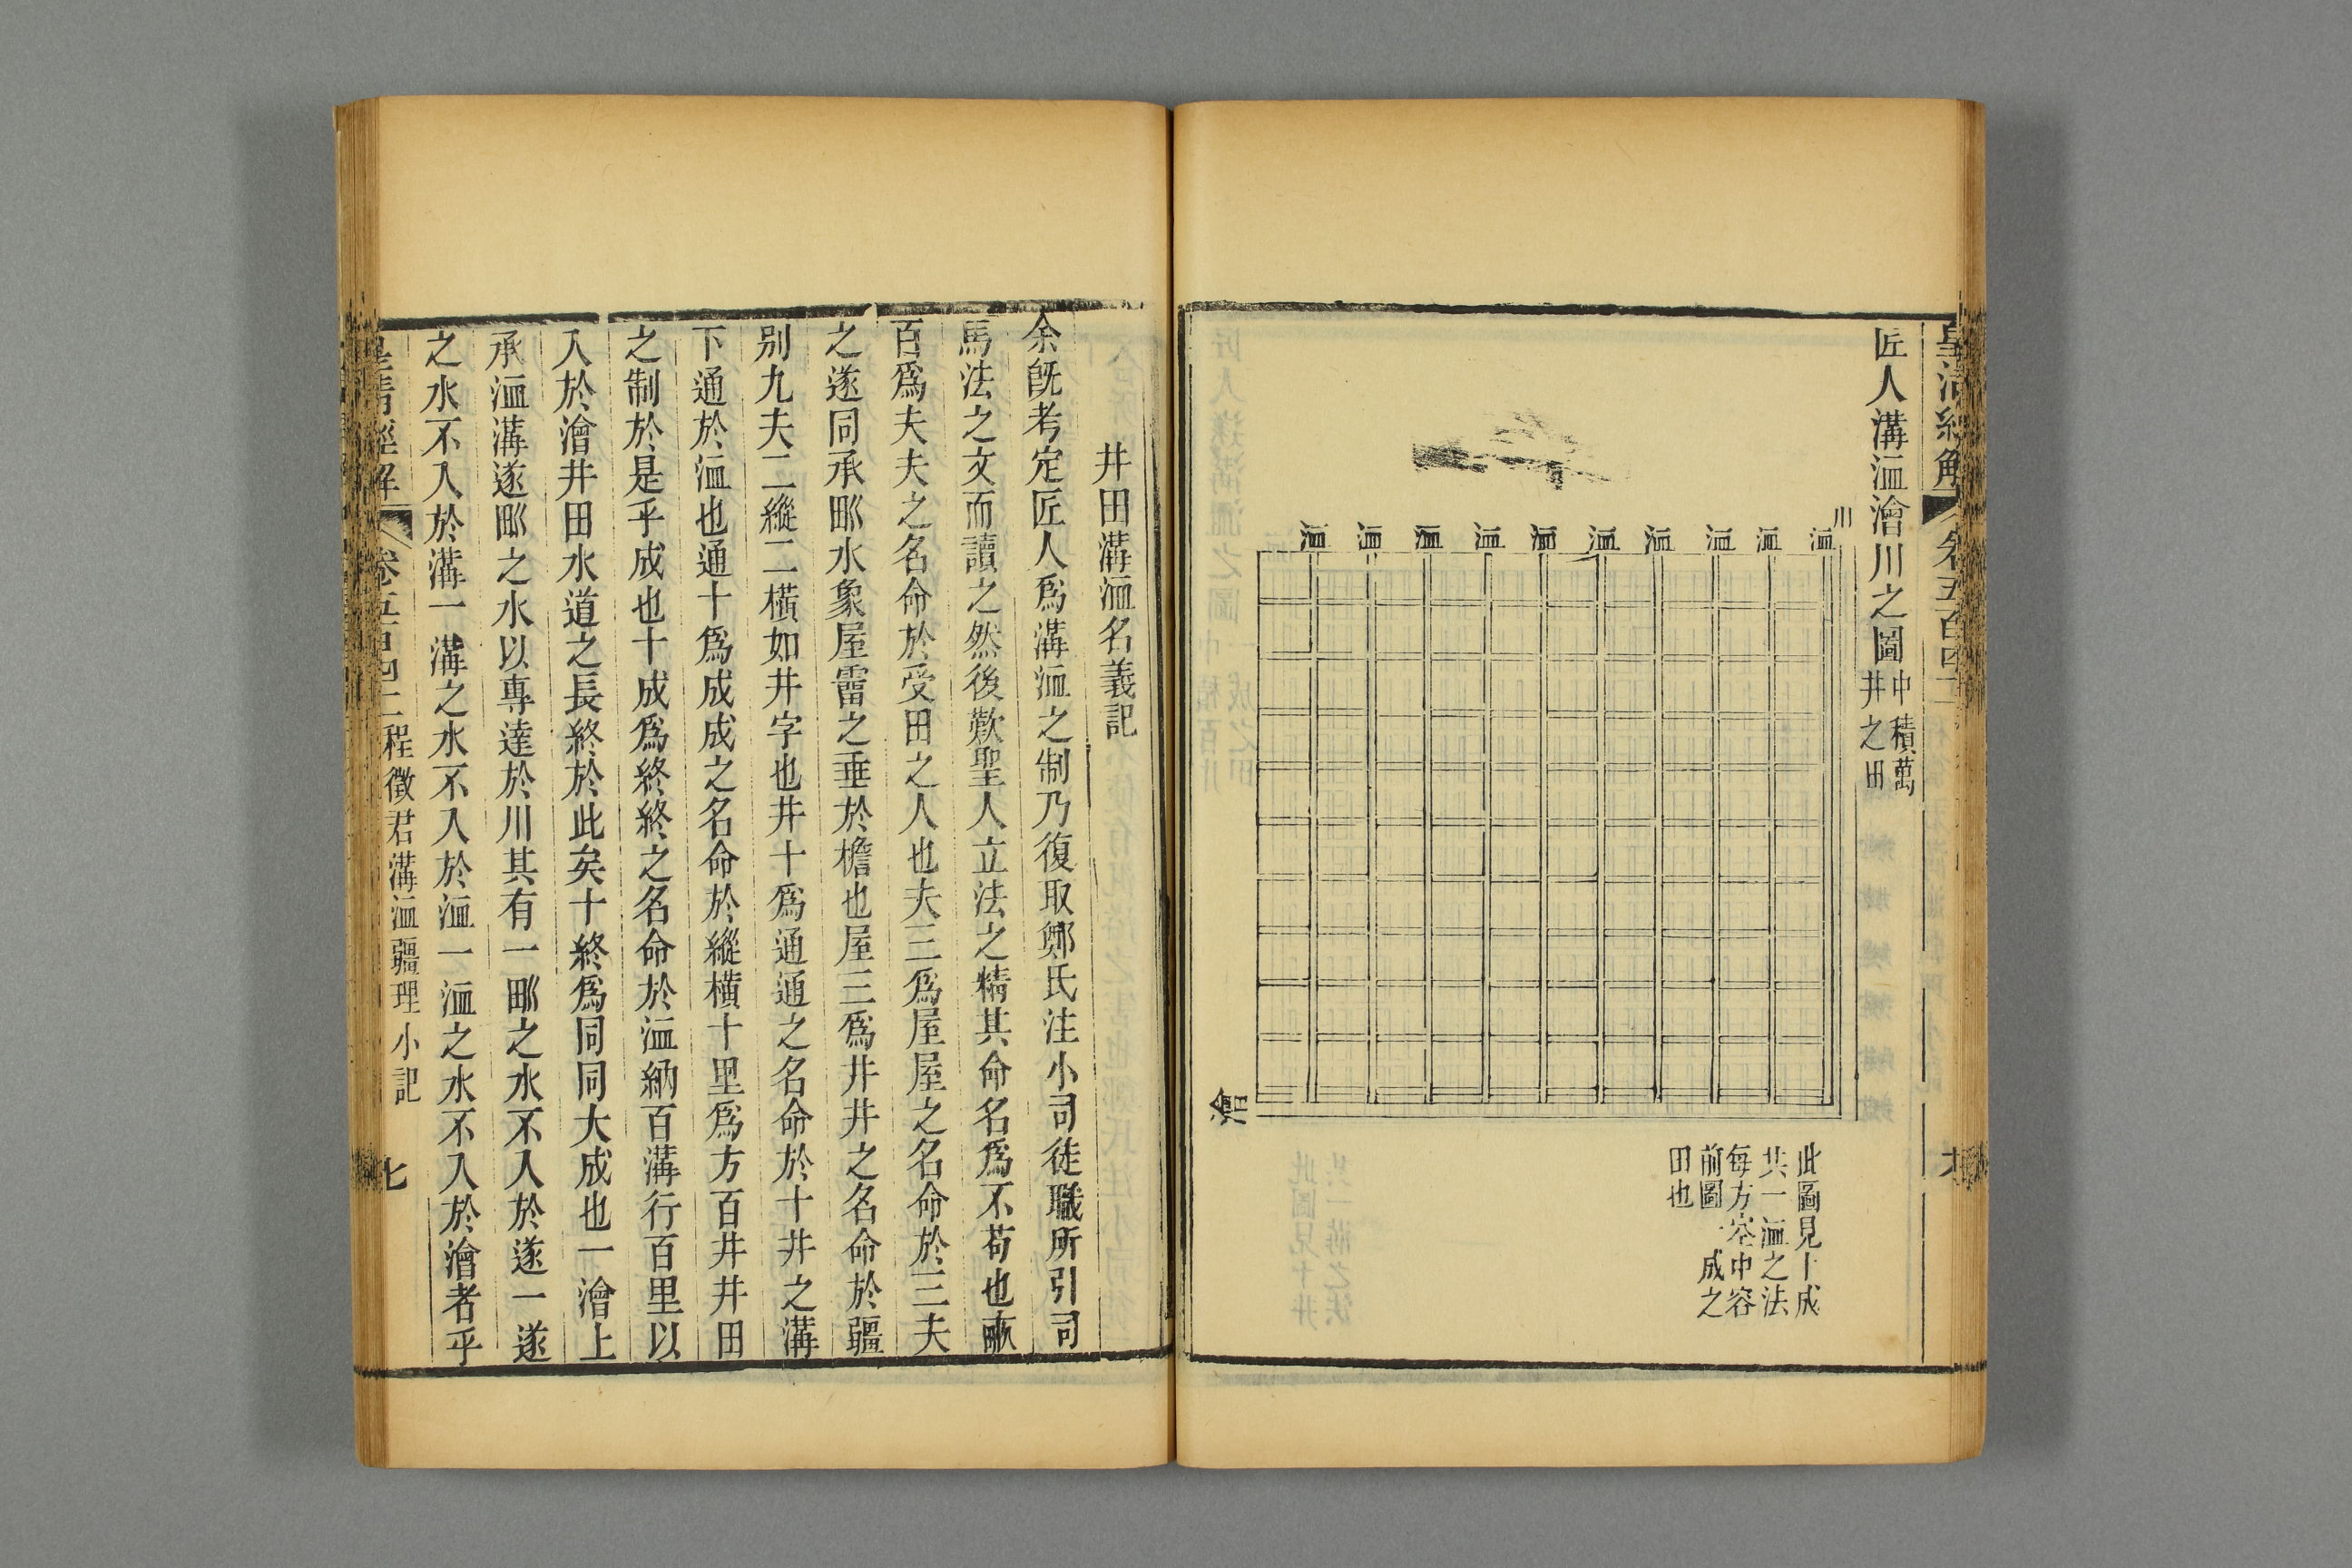 皇清經解
卷五百四十
匠人溝洫澮川之圖中積萬
井之田
川
洫
洫
洫
洫
洫
洫
洫
洫
洫
洫
澮
此圖見十成
共一洫之法
每方空中容
前圖一成之
田也
井田溝洫名義記
余旣考定匠人爲溝洫之制乃復取鄭氏注小司徒職所引司
馬法之文而讀之然後歎聖人立法之精其命名爲不苟也畞
百爲夫夫之名命於受田之人也夫三爲屋屋之名命於三夫
之遂同承𤰕水象屋霤之垂於檐也屋三爲井井之名命於疆
别九夫二縱二橫如井字也井十爲通通之名命於十井之溝
下通於洫也通十爲成成之名命於縱橫十里爲方百井井田
之制於是乎成也十成爲終終之名命於洫納百溝行百里以
入於澮井田水道之長終於此矣十終爲同同大成也一澮上
承洫溝遂𤰕之水以專達於川其有一𤰕之水不入於遂一遂
之水不入於溝一溝之水不入於洫一洫之水不入於澮者乎
皇清經解
卷五百四二
程徵君溝洫疆理小記
七